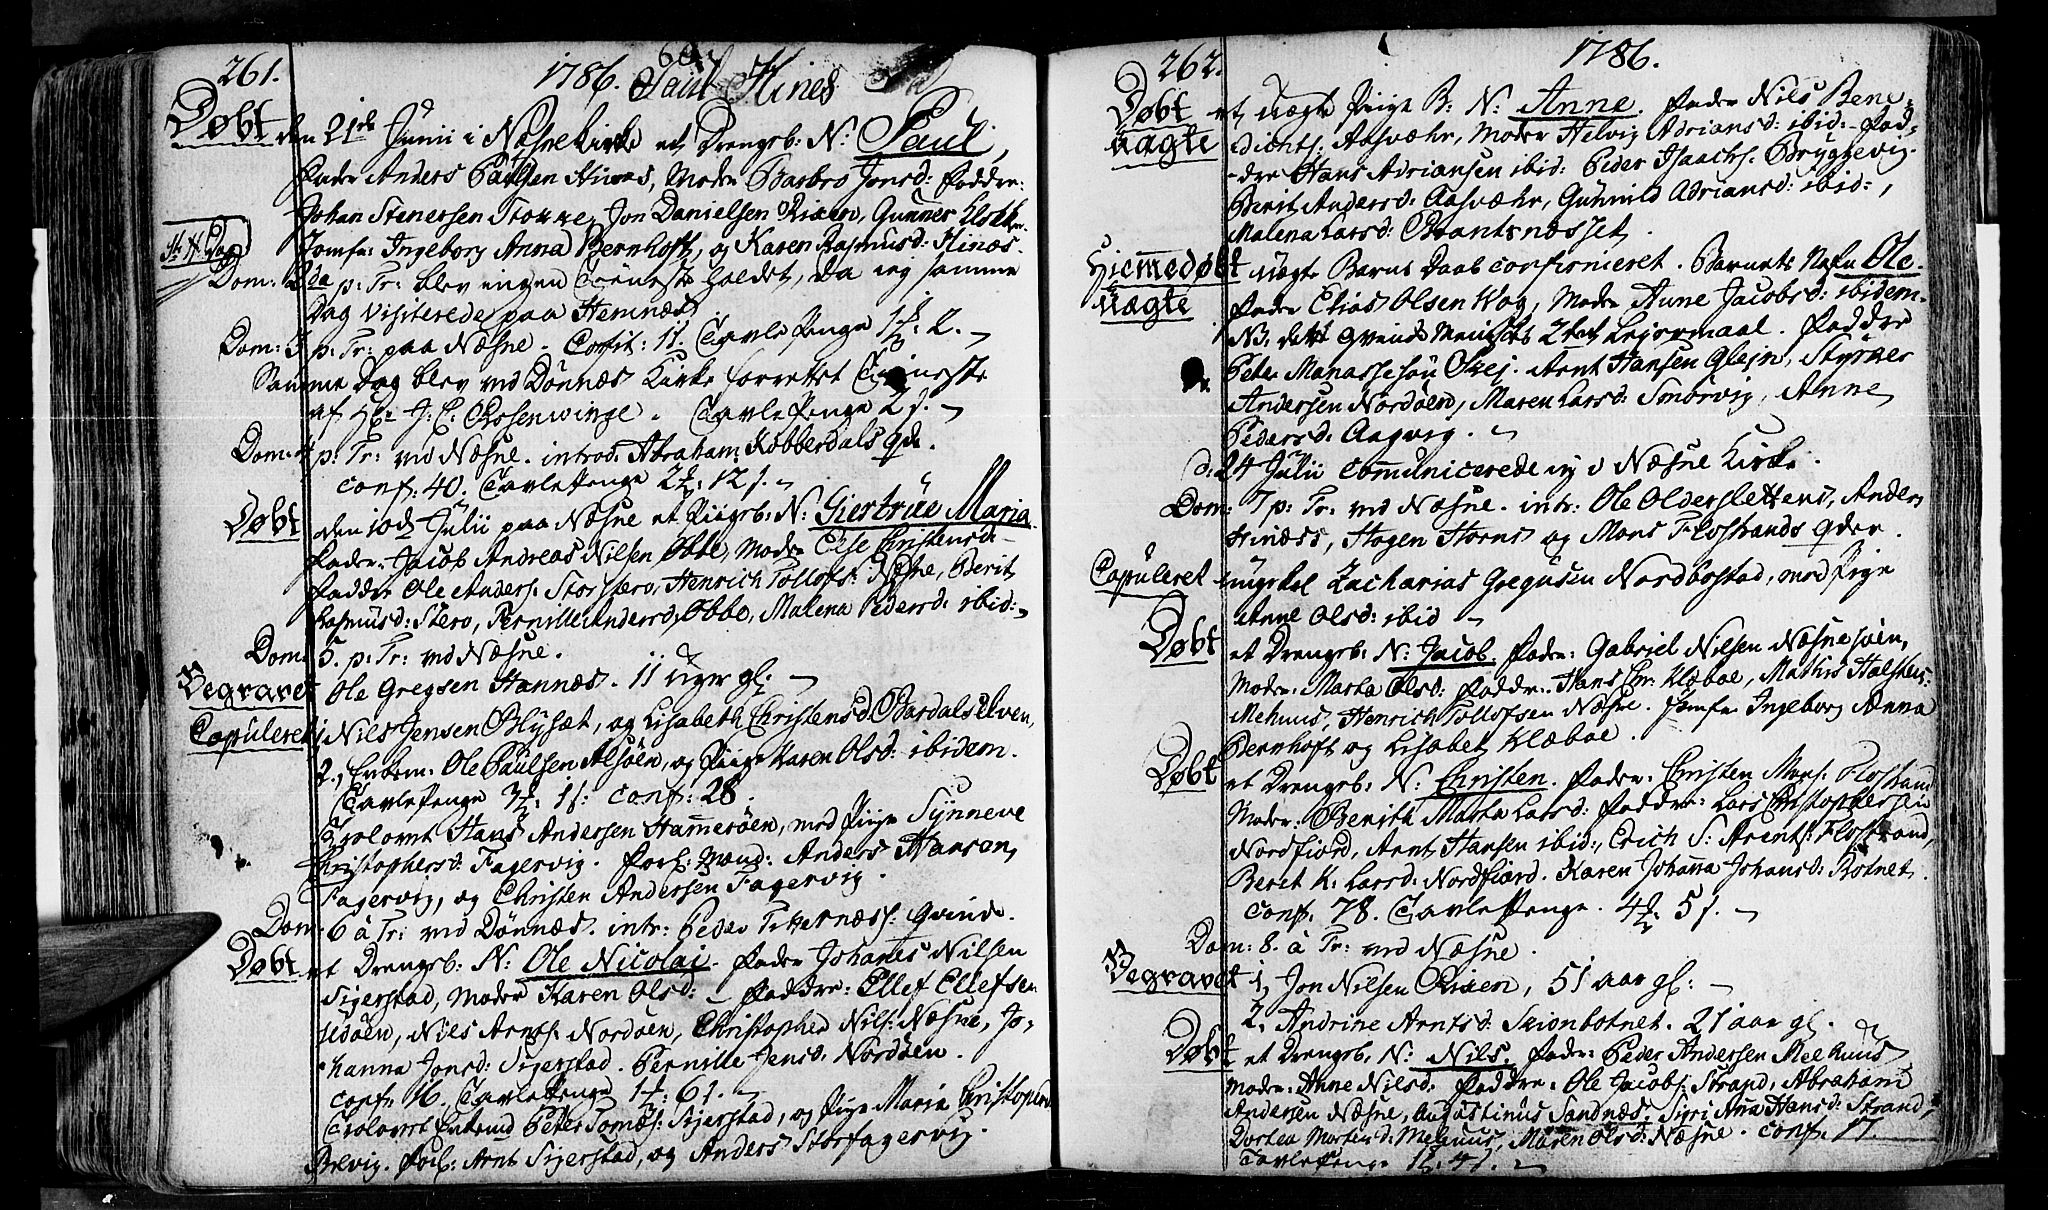 261.
1786.
Paul Hines
Døbt den 21de Junii i Næsne Kirke et Drengeb: N: Paul,
Fader Anders Paulsen Hines, Moder Barbro Jonsd: Faddre:
Johan Stenersen Stokke, Jon Danielsen, Gunner
Jomfr: Ingeborg Anna Bernhoft, og Karen Rasmusd: Hinæs.
St. H. Dag
Dom: 2da p: Tr: blev ingen Tieneste holdet, da jeg samme
Dag visiterede paa Hemnæs
Dom: 3 p: Tr: paa Næsne. Confit: 11. Tavle Penge 2.
Samme Dag blev ved Dønnæs Kirke forrettet Tieneste
af Hr: J: C: Rosenwinge. Tavle Penge 2 s.
Dom: 4 p: Tr: ved Næsne. introd: Abraham Kobberdals qde.
conf: 40. Tavle Penge 2: 12 s.
Døbt den 10d Julii paa Næsne et Pigeb: N: Giertrue Maria
Fader: Jacob Andreas Nilsen Ebbe, Moder Else Christensd:
Faddre Ole Anders: Storstero, Henrich Tollofs: Næsne, Berit
Rasmusd: Stero, Pernille Andersd: Ebbe, Malena Pedersd: ibid:
Dom: 5. p: Tr: ved Næsne.
Begravet Ole Gregsen Hannæs. 11 uger gl:
Copuleret 1, Nils Jensen Blysæt, og Lisabeth Christensd: Bardalselven,
2., Enkem: Ole Paulsen Alsøen, og Pige Karen Olsd: ibidem.
Tavle Penge 1 s: conf: 28.
Trolovet Hans Andersen Hammerøen, med Pige Synneve
Christophersd: Fagervig. Forl: Mænd: Anders Hansen,
Fagervig, og Christen Andersen Fagervig.
Dom: 6 à Tr: ved Dønnæs. intr: Peder Qvinde.
Døbt et Drengeb: N: Ole Nicolai. Fader Johanes Nilsen
Sigerstad, Moder Karen Olsd: Faddre: Ellef Ellefsen
Nils Arnts: Nordøen, Christopher Nils: Næsne, Jo-
hanna Jonsd: Sigerstad. Pernille Jensd: Nordøen.
conf: 16. Tavle Penge 6 s.
Trolovet Enkemd Peter Tomæs: Sigerstad, og Pige Maria Christophersd
Brevig. Forl: Arnt Sigerstad, og Anders Storfagervig.
262.
1786.
Døbt uægte et uægte Pige B: N: Anne. Fader Nils Bene-
dicts: Aasvær, Moder Helvig Adriansd: ibid: Fad-
dre Hans Adriansen ibid: Peder Isaachs: Bryggevig.
Berit Andersd: Aasvær, Gunnild Adriansd: ibid:,
Malena Larsd: Brantsnæsset.
Hiemmedøbt uægte Barns Daab confirmeret. Barnets Nafn Ole.
uægte
Fader Elias Olsen Kog, Moder Anne Jacobsd: ibidem.
NB. dette qvinde Meniskes 2det Lejermaal. Faddre
Peter Manassesøn Skej. Arnt Hansen Glejn, Styrker
Andersen Nordøen, Maren Larsd: Smorvig, Anne
Pedersd: Aagvig.
d: 24 Julii comunicerede jeg i Næsne Kirke.
Dom: 7 p: Tr: ved Næsne. intr: Ole Olderslettens, Anders
Hinæss, Hagen Horns og Mons Flostrands qder.
Copuleret ungekal Zacharias Gregusen Nordbostad, med Pige
Anne Olsd: ibid
Døbt et Drengeb: N: Jacob. Fader: Gabriel Nilsen Næsnesøen,
Moder: Marta Olsd: Faddr: Hans Chr: Klæboe, Mathis Halstens:
Mehuus, Henrich Tollofsen Næsne. Jomfr: Ingeborg Anna
Bernhoft og Lisabet Klæboe.
Døbt et Drengeb: N: Christen. Fader: Christen Mons: Flostrand
Moder: Berith Marta Larsd: Faddre: Lars Christophersen
Nordfiord, Arnt Hansen ibid:, Erich S: Arents: Flostrand,
Beret K: Larsd: Nordfiord. Karen Johanna Johansd: Botnet.
conf: 78. Tavle Penge. 4: 5 s.
Dom: 8. à Tr: ved Næsne.
Begravet 1, Jon Nilsen, 51 aar gl:
2, Andrine Arntsd: Skionbotnet. 21 aar gl.
Døbt et Drengeb: N: Nils. Fader: Peder Andersen Meehuus
Moder: Anne Nilsd: Faddre: Ole Jacobs: Strand, Abraham
Andersen Næsne, Augustinus Sandnæs. Sigri Anna Hansd: Strand,
Dortea Mortensd: Mehuus, Maren Olsd: Næsne. conf: 17.
Tavle Penge 4 s.